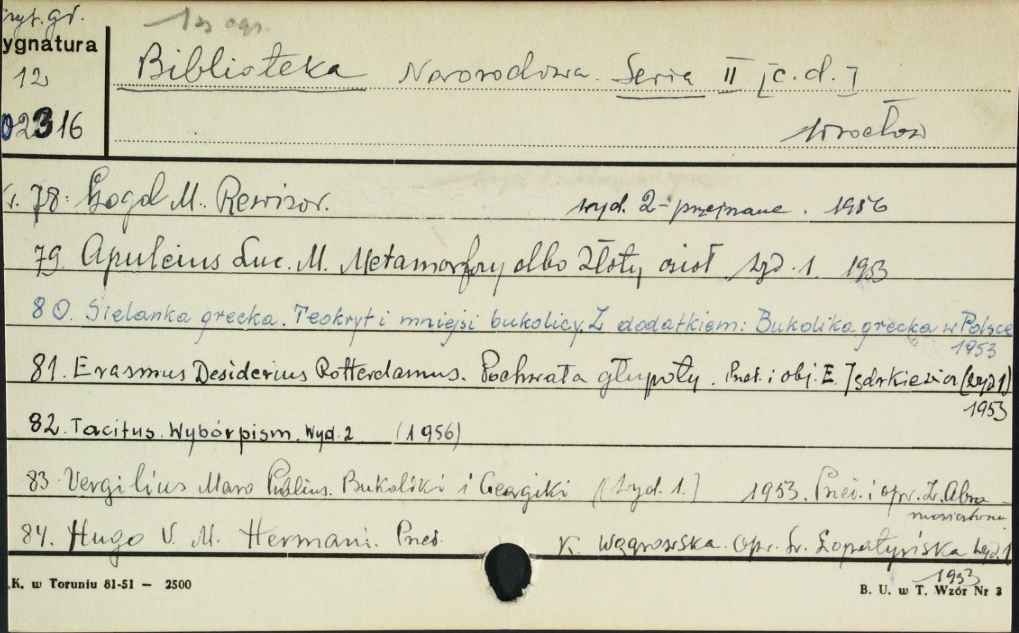 1 egz ogr.
ygnatura
12
02316
Biblioteka Narodowa. Seria II [c.d.]
Wrocław
78. Gogol M. Rewizor. wyd. 2-przejrzane. 1956
79. Apuleius Luc. M. Metamorfozy albo Złoty osioł wyd. 1. 1953
80. Sielanka grecka. Teokryt i mniejsi bukolicy. Z dodatkiem: Bukolika grecka w Polsce
1953
81. Erasmus Desiderius Rotterdamus. Pochwała głupoty. Przeł. i obj. E. Jędrkiewicz (wyd 1)
1953
82. Tacitus. Wybór pism. Wyd. 2 (1956)
83. Vergilius Maro Publius. Bukoliki i Georgiki (Wyd. 1.] 1953. Przeł. i opr. Z. Abra
mowiczówna
84. Hugo V. M. Hernani. Przeł. K. Węgrzewska. Opr. Łopatyńska wyd. 1
1953
K. w Toruniu 81-51 — 2500
B. U. w T. Wzór Nr 3